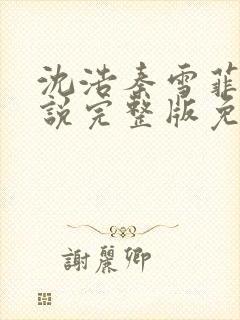 沈浩秦雪菲
說完整版免
謝麗卿